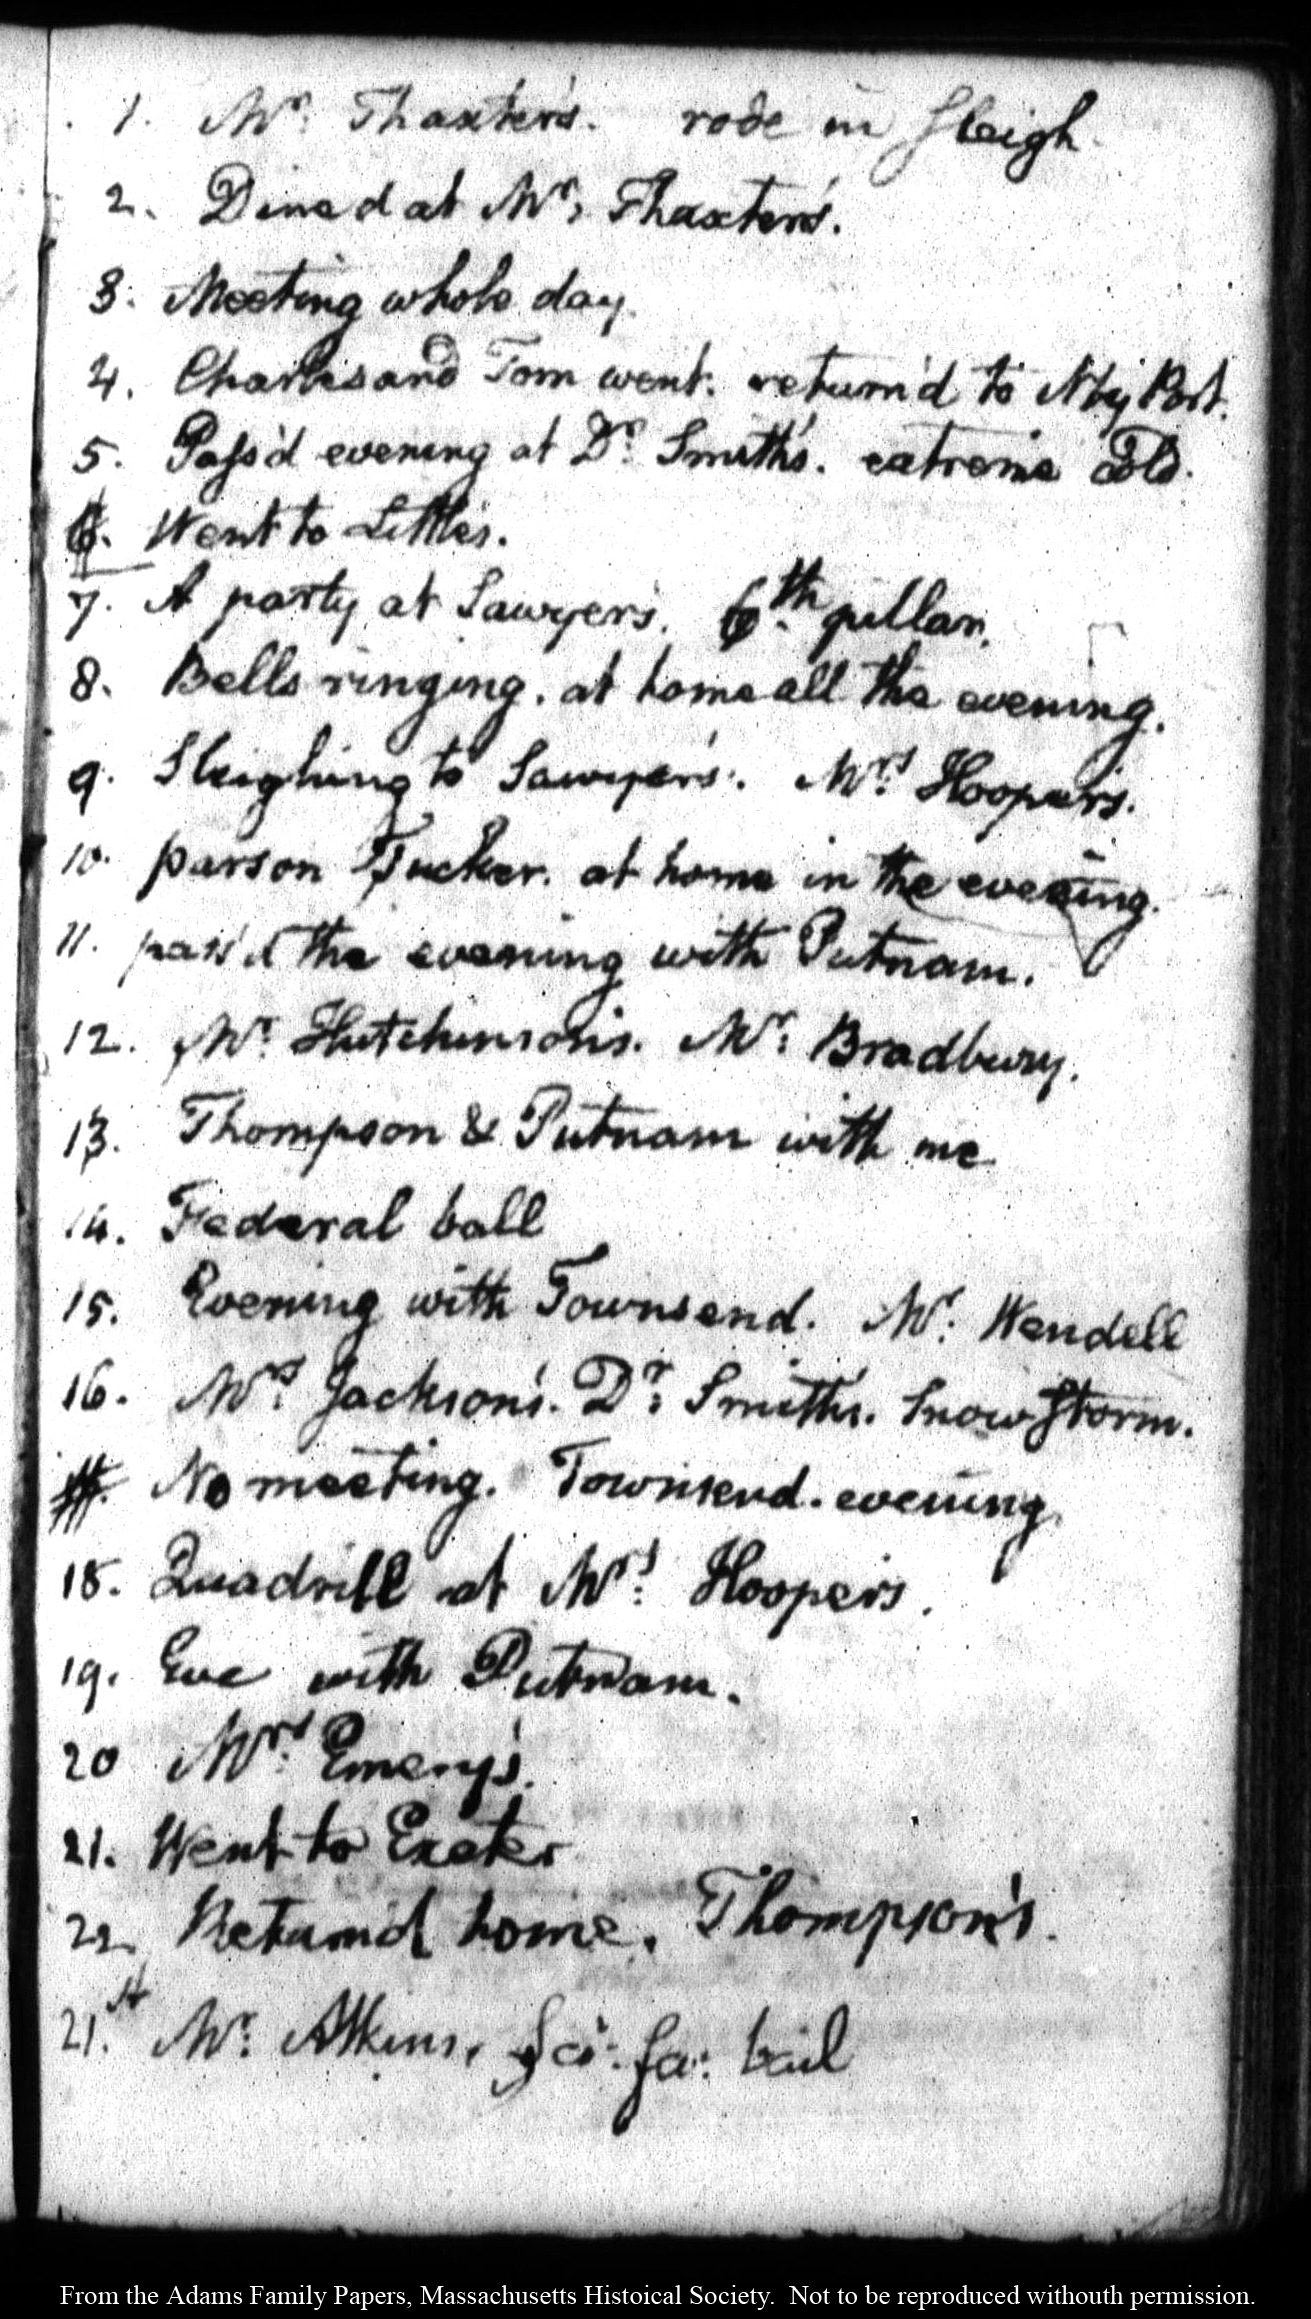 1. Mr: Thaxter's. rode in Sleigh.
2. Dined at Mr: Thaxter's.
3. Meeting whole day.
4. Charles and Tom went. return'd to Nby Port.
5. Pass'd evening at Dr: Smith's. extreme Cold.
6. Went to Little's.
7. A party at Sawyer's. 6th: pillar.
8. Bells ringing. at home all the evening.
9. Sleighing to Sawyer's. Mrs: Hooper's.
10. parson Tucker. at home in the evening.
11. pass'd the evening with Putnam.
12. Mr: Hutchinson's. Mr: Bradbury.
13. Thompson & Putnam with me
14. Federal ball
15. Evening with Townsend. Mr: Wendell
16. Mrs: Jackson's. Dr: Smith's. Snow Storm.
17. No meeting. Townsend. evening.
18. Quadrille at Mrs: Hooper's.
19. Eve with Putnam.
20 Mrs: Emery's.
21. Went to Exeter
22. Return'd home. Thompson's.
21. Mr: Atkins, Sci: fa: bail
From the Adams Family Papers, Massachusetts Histoical Society. Not to be reproduced withouth permission.